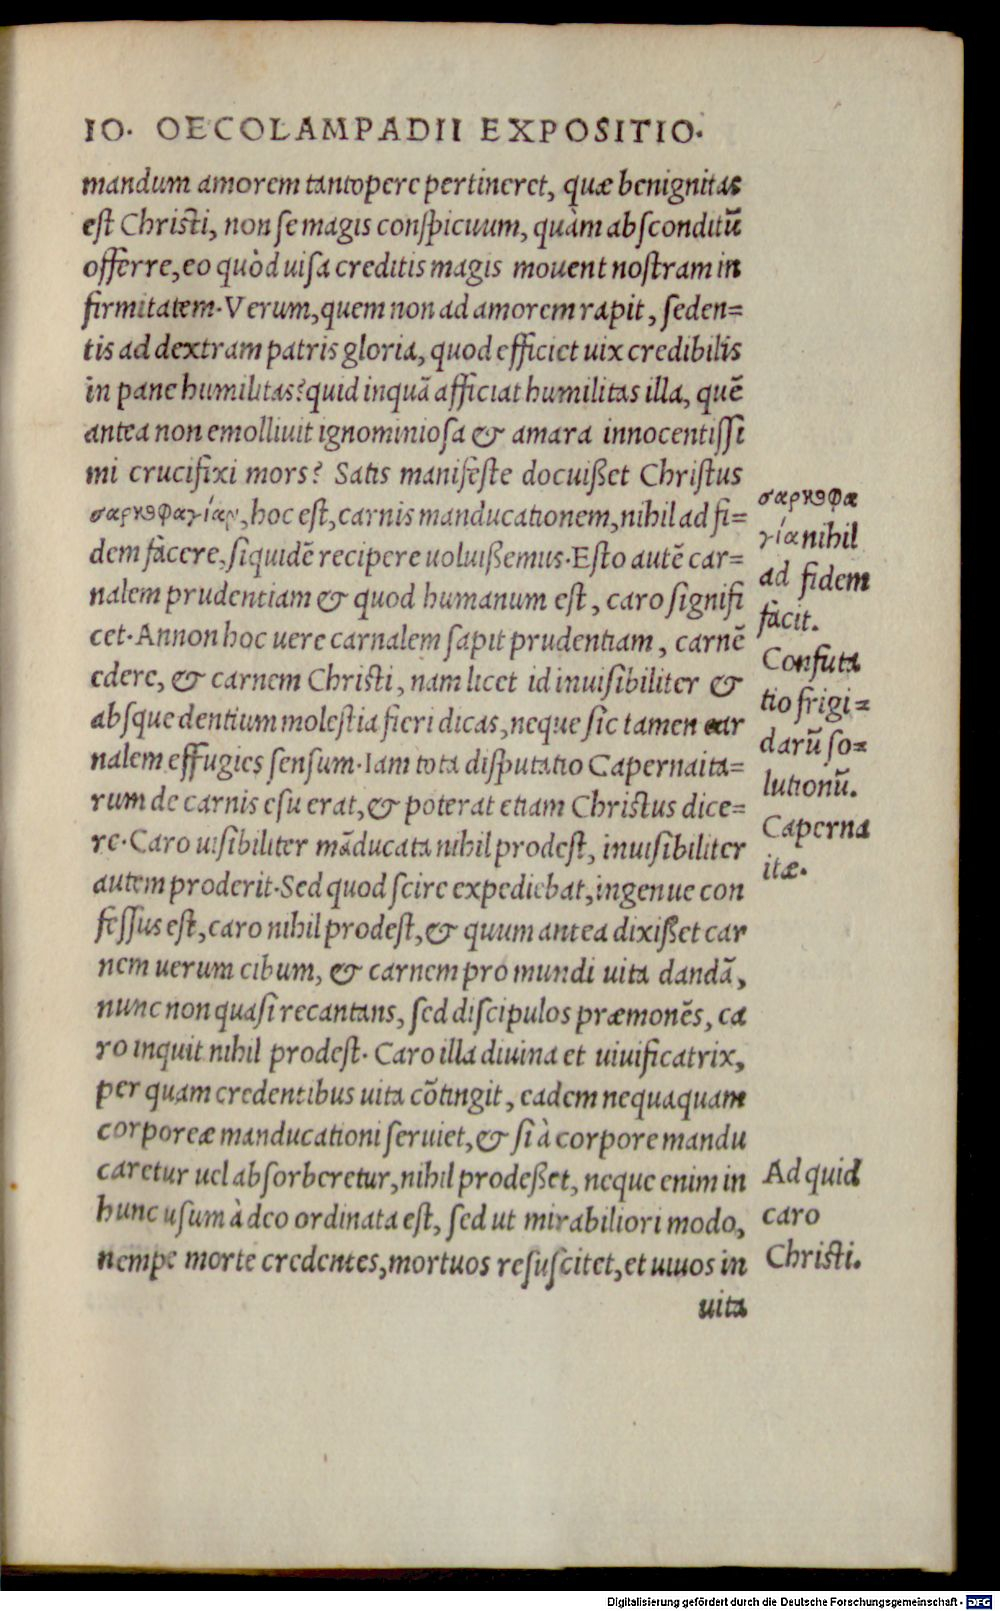 IO. OECOLAMPADII EXPOSITIO.
mandum amorem tantopere pertineret, quæ benignitas
est Christi, non se magis conspicuum, quàm absconditū
offerre, eo quòd uisa creditis magis mouent nostram in
firmitatem. Verum, quem non ad amorem rapit, seden=
tis ad dextram patris gloria, quod efficiet uix credibilis
in pane humilitas? quid inquā afficiat humilitas illa, quē
antea non emolliuit ignominiosa & amara innocentissi
mi crucifixi mors? Satis manifeste docuißet Christus
σαρκοφαγίαν, hoc est, carnis manducationem, nihil ad fi=
dem facere, siquidē recipere uoluißemus. Esto autē car=
nalem prudentiam & quod humanum est, caro signifi
cet. Annon hoc uere carnalem sapit prudentiam, carnē
edere, & carnem Christi, nam licet id inuisibiliter &
absque dentium molestia fieri dicas, neque sic tamen car
nalem effugies sensum. Iam tota disputatio Capernaita=
rum de carnis esu erat, & poterat etiam Christus dice=
re. Caro uisibiliter māducata nihil prodest, inuisibiliter
autem proderit. Sed quod scire expediebat, ingenue con
fessus est, caro nihil prodest, & quum antea dixißet car
nem uerum cibum, & carnem pro mundi uita dandā,
nunc non quasi recantans, sed discipulos præmonēs, ca
ro inquit nihil prodest. Caro illa diuina et uiuificatrix,
per quam credentibus uita cōtingit, eadem nequaquam
corporeæ manducationi seruiet, & si à corpore mandu
caretur uel absorberetur, nihil prodeßet, neque enim in
hunc usum à deo ordinata est, sed ut mirabiliori modo,
nempe morte credentes, mortuos resuscitet, et uiuos in
uita
σαρκοφα
γία nihil
ad fidem
facit.
Confuta
tio frigi=
darū so=
lutionū.
Caperna
itæ.
Ad quid
caro
Christi.
Digitalisierung gefördert durch die Deutsche Forschungsgemeinschaft - DFG